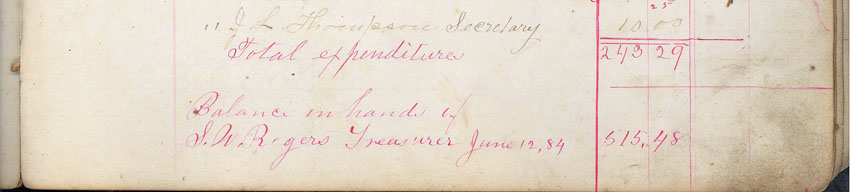 25
" J. L. Thompson Secretary 10 00
Total expenditures 243 29
Balance in hands of
J. W. Rogers Treasurer June 12, 84 515.48